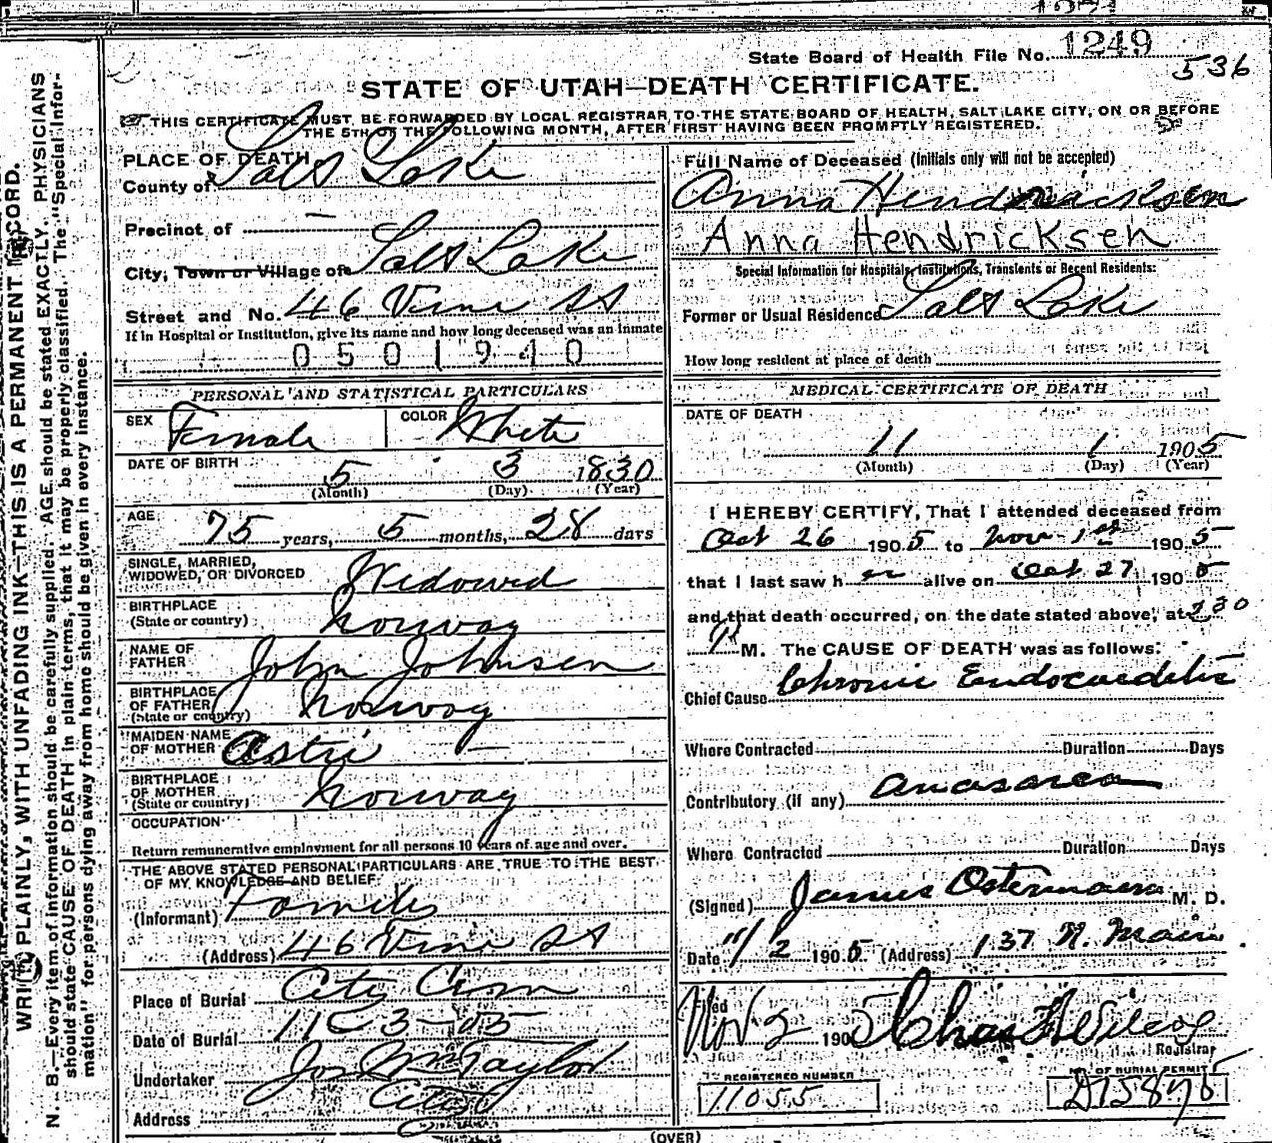 1249
State Board of Health File No.
536
STATE OF UTAH—DEATH CERTIFICATE.
THIS CERTIFICATE MUST BE FORWARDED BY LOCAL REGISTRAR TO THE STATE BOARD OF HEALTH, SALT LAKE CITY, ON OR BEFORE
THE 5TH OF THE FOLLOWING MONTH, AFTER FIRST HAVING BEEN PROMPTLY REGISTERED.
WRITE PLAINLY, WITH UNFADING INK—THIS IS A PERMANENT RECORD.
N. B.—Every item of information should be carefully supplied. AGE should be stated EXACTLY. PHYSICIANS
should state CAUSE OF DEATH in plain terms, that it may be properly classified. The "Special Infor-
mation" for persons dying away from home should be given in every instance.
PLACE OF DEATH
County of Salt Lake
Precinct of —
City, Town or Village of Salt Lake
Street and No. 46 Vine St
If in Hospital or Institution, give its name and how long deceased was an inmate
0501940
PERSONAL AND STATISTICAL PARTICULARS
SEX Female COLOR White
DATE OF BIRTH 5 3 1830
(Month) (Day) (Year)
AGE 75 years, 5 months, 28 days
SINGLE, MARRIED,
WIDOWED, OR DIVORCED Widowed
BIRTHPLACE
(State or country) Norway
NAME OF
FATHER John Johnsen
BIRTHPLACE
OF FATHER
(State or country) Norway
MAIDEN NAME
OF MOTHER Astri —
BIRTHPLACE
OF MOTHER
(State or country) Norway
OCCUPATION
Return remunerative employment for all persons 10 years of age and over.
THE ABOVE STATED PERSONAL PARTICULARS ARE TRUE TO THE BEST
OF MY KNOWLEDGE AND BELIEF
(Informant)
(Address) 46 Vine St
Place of Burial City Cem
Date of Burial 11-3-05
Undertaker Jos Wm Taylor
Address City
Full Name of Deceased (Initials only will not be accepted)
Anna Hendricksen
Anna Hendricksen
Special Information for Hospitals, Institutions, Transients or Recent Residents:
Former or Usual Residence Salt Lake
How long resident at place of death
MEDICAL CERTIFICATE OF DEATH
DATE OF DEATH
11 1 1905
(Month) (Day) (Year)
I HEREBY CERTIFY, That I attended deceased from
Oct 26 1905 to Nov 1st 1905
that I last saw her alive on Oct 27 1905
and that death occurred, on the date stated above, at 30
P M. The CAUSE OF DEATH was as follows:
Chief Cause Chronic Endocarditis
Where Contracted Duration Days
Contributory (if any) Anasarca
Where Contracted Duration Days
(Signed) James Ostermann M. D.
Date 11/2 1905 (Address) 137 N. Main
Filed
Nov 2 1905 Chas H Wilcox
Registrar
REGISTERED NUMBER
11055
OF BURIAL PERMIT
(OVER)